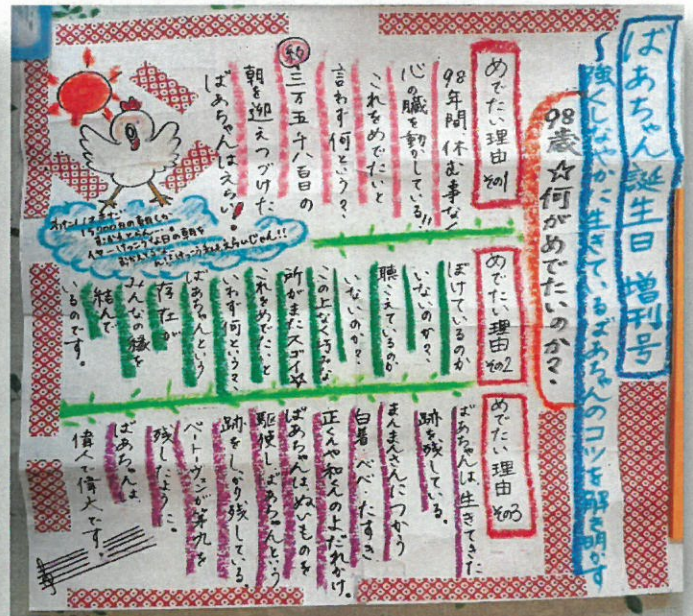 ばあちゃん誕生日 増刊号
〜強くしなやかに生きているばあちゃんのコツを解き明かす
98歳☆何がめでたいのか?
めでたい理由 その1
98年間、休む事なく
心の臓を動かしている!!
これをめでたいと
言わず何という?
約三万五千八百日の
朝を迎えつづけた
ばあちゃんはえらい!
めでたい理由 その2
ぼけているのか
いないのか?
聴こえているのか
いないのか?
この上なく巧みな
所がまたスゴイ☆
これをめでたいと
いわず何という?
ばあちゃんという
存在が
みんなの縁を
結んで
いるのです。
めでたい理由 その3
ばあちゃんは、生きてきた
跡を残している。
まんまんさんにつかう
白着・べべ・たすき
正くんや和くんのよだれかけ。
ばあちゃんは、ぬいものを
駆使し、ばあちゃんという
跡をしっかり残している。
ベートーヴェンが第九を
残したように。
ばあちゃんは
偉人で偉大です。